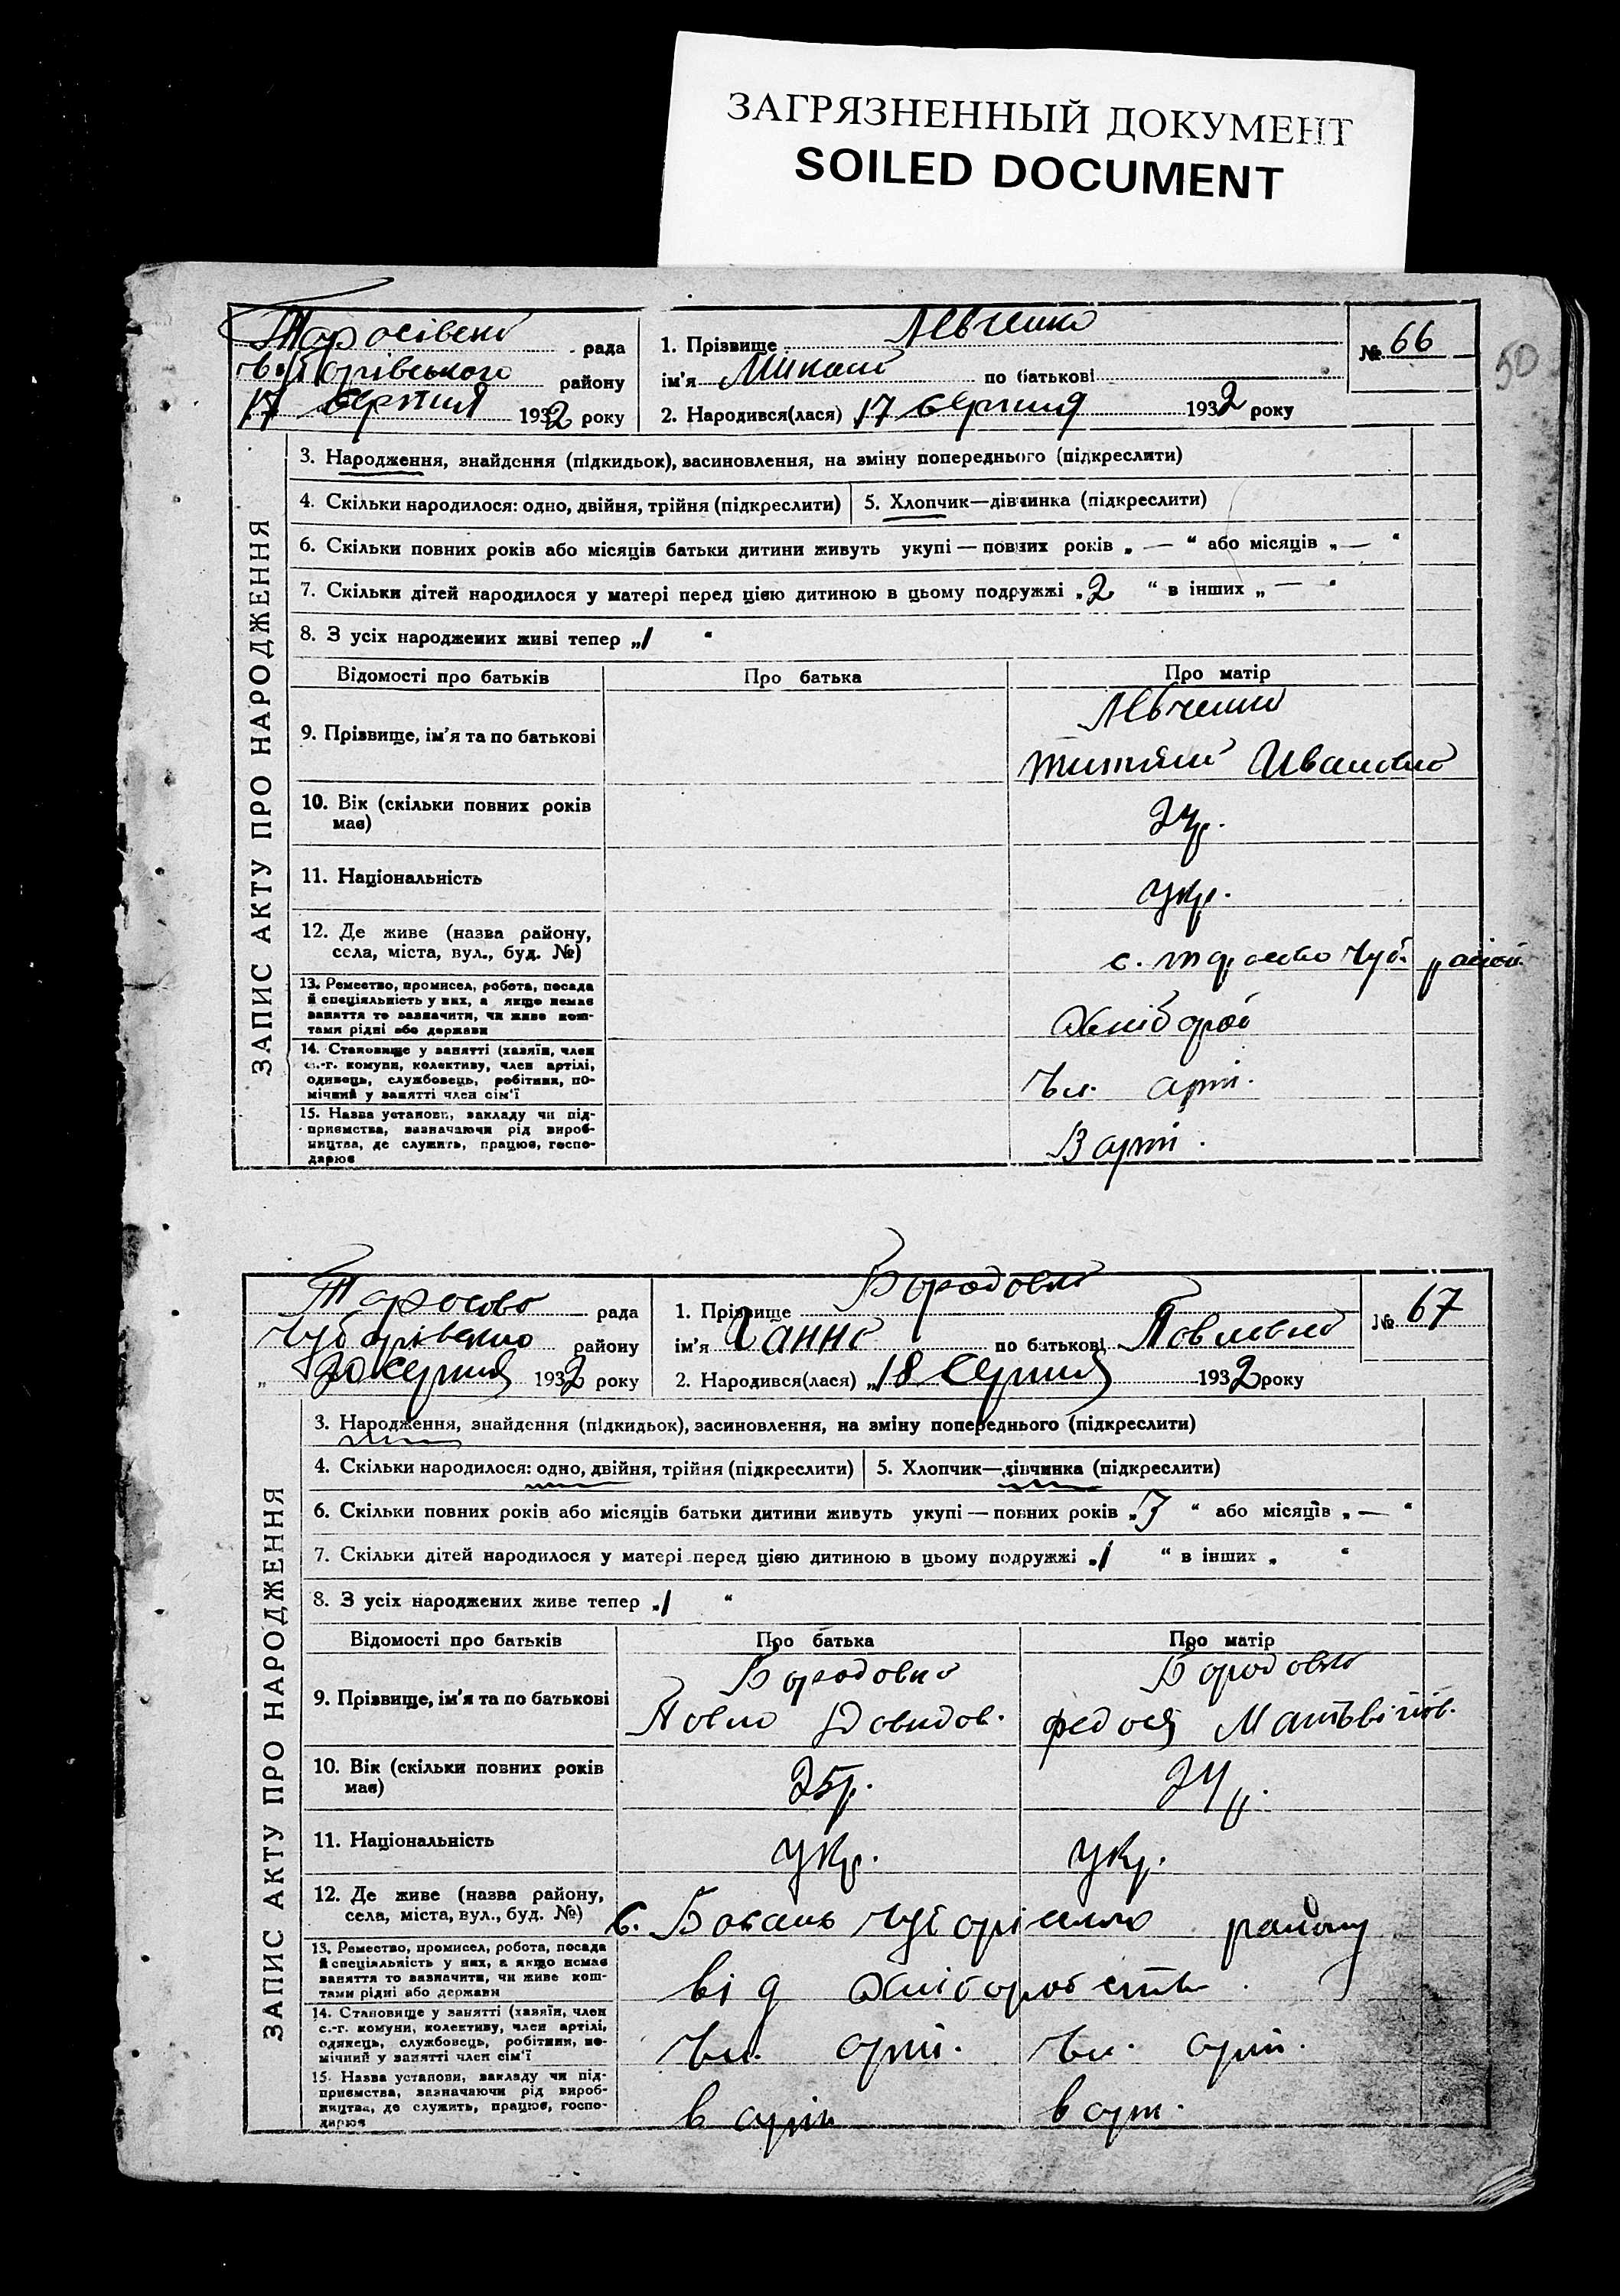 ЗАГРЯЗНЕННЫЙ ДОКУМЕНТ
SOILED DOCUMENT
50
рада
району
17 серпня 1932 року
1. Прізвище Левченко
ім'я Микола по батькові
2. Народився(лася) 17 серпня 1932 року
№ 66
ЗАПИС АКТУ ПРО НАРОДЖЕННЯ
3. Народження, знайдення (підкидьок), засиновлення, на зміну попереднього (підкреслити)
4. Скільки народилося: одно, двійня, трійня (підкреслити) 5. Хлопчик—дівчинка (підкреслити)
6. Скільки повних років або місяців батьки дитини живуть укупі — повних років „ — “ або місяців „ — “
7. Скільки дітей народилося у матері перед цією дитиною в цьому подружжі „ 2 “ в інших „ — “
8. З усіх народжених живі тепер „ 1 “
Відомості про батьків Про батька Про матір
9. Прізвище, ім'я та по батькові
Левченко
Ивановна
10. Вік (скільки повних років
має)
24 р.
11. Національність
укр.
12. Де живе (назва району,
села, міста, вул., буд. №)
с. Чуб. район
13. Ремество, промисел, робота, посада
й спеціяльність у них, а якщо немає
заняття то зазначити, чи живе кош-
тами рідні або держави
Хлібороб
14. Становище у занятті (хазяїн, член
с.-г. комуни, колективу, член артілі,
одинець, службовець, робітник, по-
мічний у занятті член сім'ї
Чл. арті.
15. Назва установи, закладу чи під-
приємства, зазначаючи рід вироб-
ництва, де служить, працює, госпо-
дарює
В арті.
рада
району
20 серпня 1932 року
1. Прізвище Бородовко
ім'я Ганна по батькові Павловна
2. Народився(лася) „ 18 Серпня 1932 року
№ 67
ЗАПИС АКТУ ПРО НАРОДЖЕННЯ
3. Народження, знайдення (підкидьок), засиновлення, на зміну попереднього (підкреслити)
4. Скільки народилося: одно, двійня, трійня (підкреслити) 5. Хлопчик—дівчинка (підкреслити)
6. Скільки повних років або місяців батьки дитини живуть укупі — повних років „ 7 “ або місяців „ — “
7. Скільки дітей народилося у матері перед цією дитиною в цьому подружжі „ 1 “ в інших „ “
8. З усіх народжених живе тепер „ 1 “
Відомості про батьків Про батька Про матір
9. Прізвище, ім'я та по батькові
Бородовко Бородовко
Павло Давидов. Федося Матьвійов.
10. Вік (скільки повних років
має)
25 р. 24 р.
11. Національність
укр. укр.
12. Де живе (назва району,
села, міста, вул., буд. №)
с. району
13. Ремество, промисел, робота, посада
й спеціяльність у них, а якщо немає
заняття то зазначити, чи живе кош-
тами рідні або держави
від
14. Становище у занятті (хазяїн, член
с.-г. комуни, колективу, член артілі,
одинець, службовець, робітник, по-
мічний у занятті член сім'ї
Чл. арті. Чл. арті.
15. Назва установи, закладу чи під-
приємства, зазначаючи рід вироб-
ництва, де служить, працює, госпо-
дарює
в арті в арт.